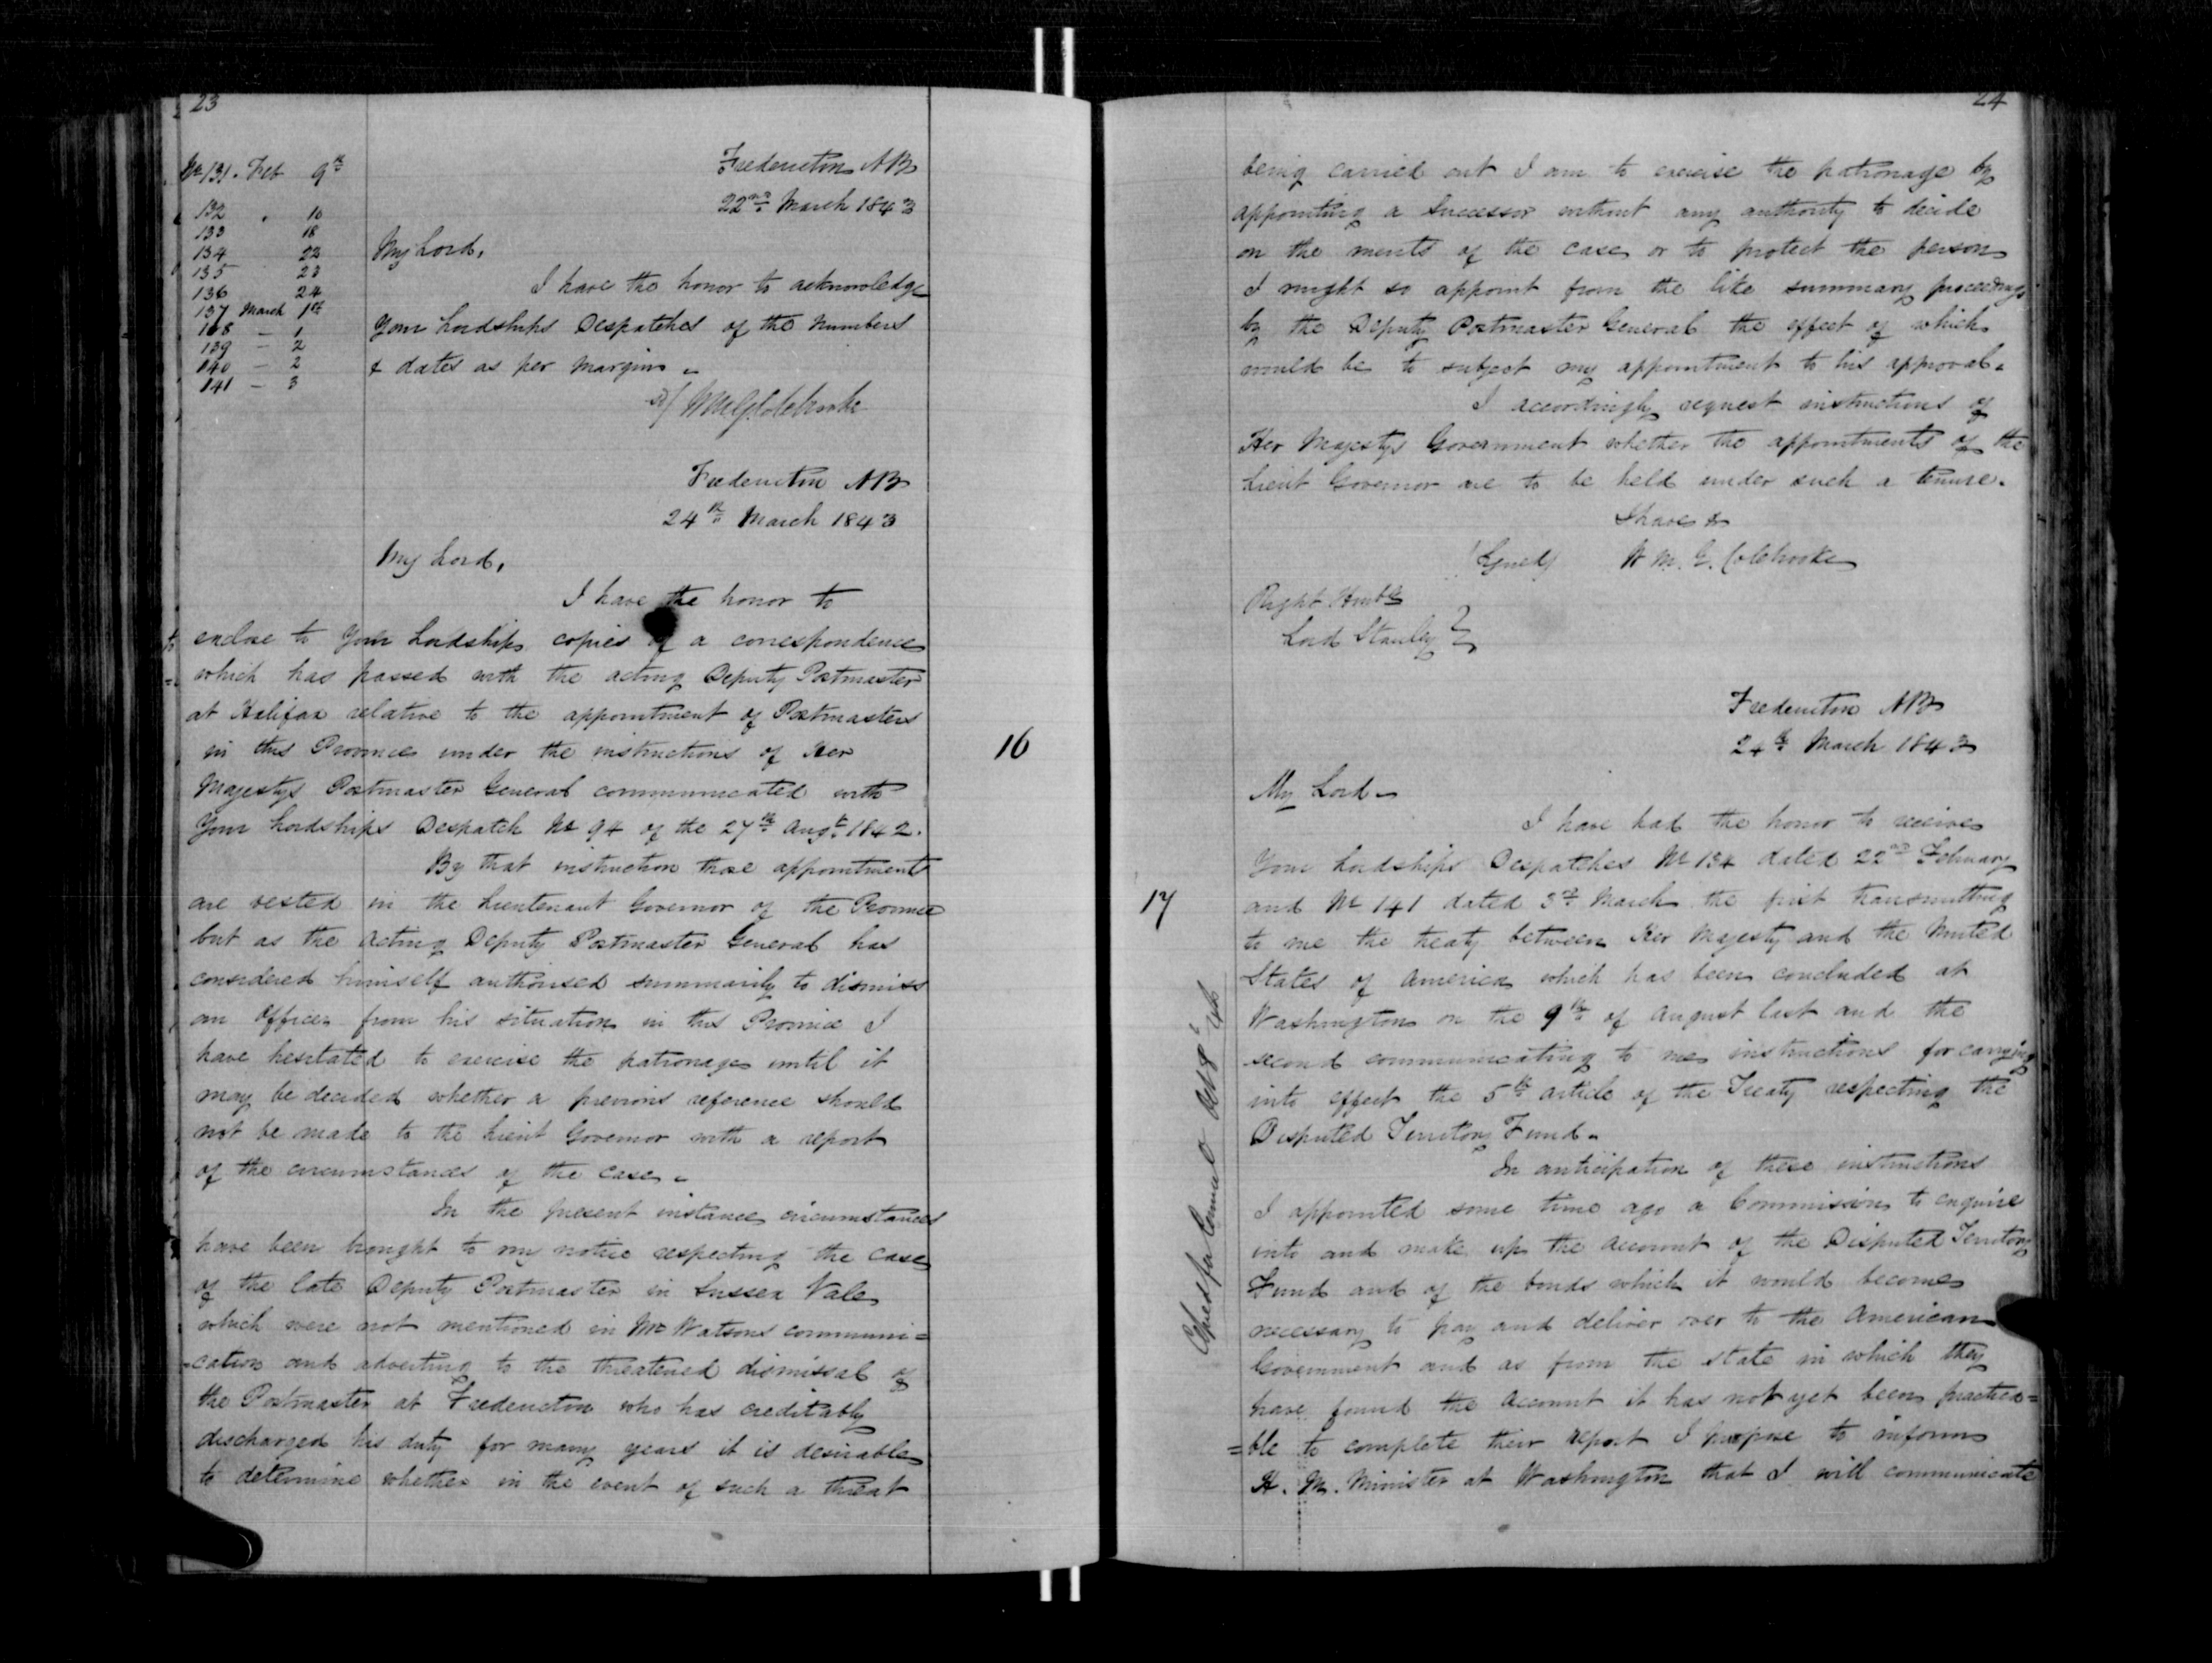 23
No 131. Feb 9th
132 " 10
133 18
134 22
135 23
136 24
137 March 1st
138 — 1
139 — 2
140 — 2
141 — 3
Fredericton NB
22nd March 1843
My Lord,
I have the honor to acknowledge
Your Lordships Despatches of the Numbers
& dates as per margin -
W M G Colebrooke
Fredericton NB
24th March 1843
My Lord,
I have the honor to
enclose to Your Lordship copies of a correspondence
which has passed with the acting Deputy Postmaster
at Halifax relative to the appointment of Postmasters
in this Province under the instructions of Her
Majestys Postmaster General communicated with
Your Lordships Despatch No 94 of the 27th Augt 1842.
16
By that instruction those appointments
are vested in the Lieutenant Governor of the Province
but as the acting Deputy Postmaster General has
considered himself authorised summarily to dismiss
an Officer from his situation in this Province I
have hesitated to exercise the patronage until it
may be decided whether a previous reference should
not be made to the Lieut Governor with a report
of the circumstances of the case -
In the present instance circumstances
have been brought to my notice respecting the case
of the late Deputy Postmaster in Sussex Vale
which were not mentioned in Mr Watsons communi=
=cation and adverting to the threatened dismissal of
the Postmaster at Fredericton who has creditably
discharged his duty for many years it is desirable
to determine whether in the event of such a threat
24
being carried out I am to exercise the patronage by
appointing a Successor without any authority to decide
on the merits of the case or to protect the person
I might so appoint from the like summary proceedings
by the Deputy Postmaster General the effect of which
would be to subject my appointment to his approval.
I accordingly request instructions of
Her Majestys Government whether the appointments of the
Lieut Governor are to be held under such a tenure.
I have &
(Signed) W. M. G. Colebrooke
Right Honble
Lord Stanley }
Fredericton NB
24th March 1843
My Lord -
I have had the honor to receive
Your Lordships Despatches No 134 dated 22nd February
17
and No 141 dated 3rd March the first transmitting
to me the treaty between Her Majesty and the United
States of America which has been concluded at
Washington on the 9th of August last and the
second communicating to me instructions for carrying
into effect the 5th article of the Treaty respecting the
Disputed Territory Fund -
In anticipation of these instructions
I appointed some time ago a Commission to enquire
into and make up the account of the Disputed Territory
Fund and of the bonds which it would become
necessary to pay and deliver over to the American
Government and as from the state in which they
have found the account it has not yet been practica=
=ble to complete their report I propose to inform
H. M. Minister at Washington that I will communicate